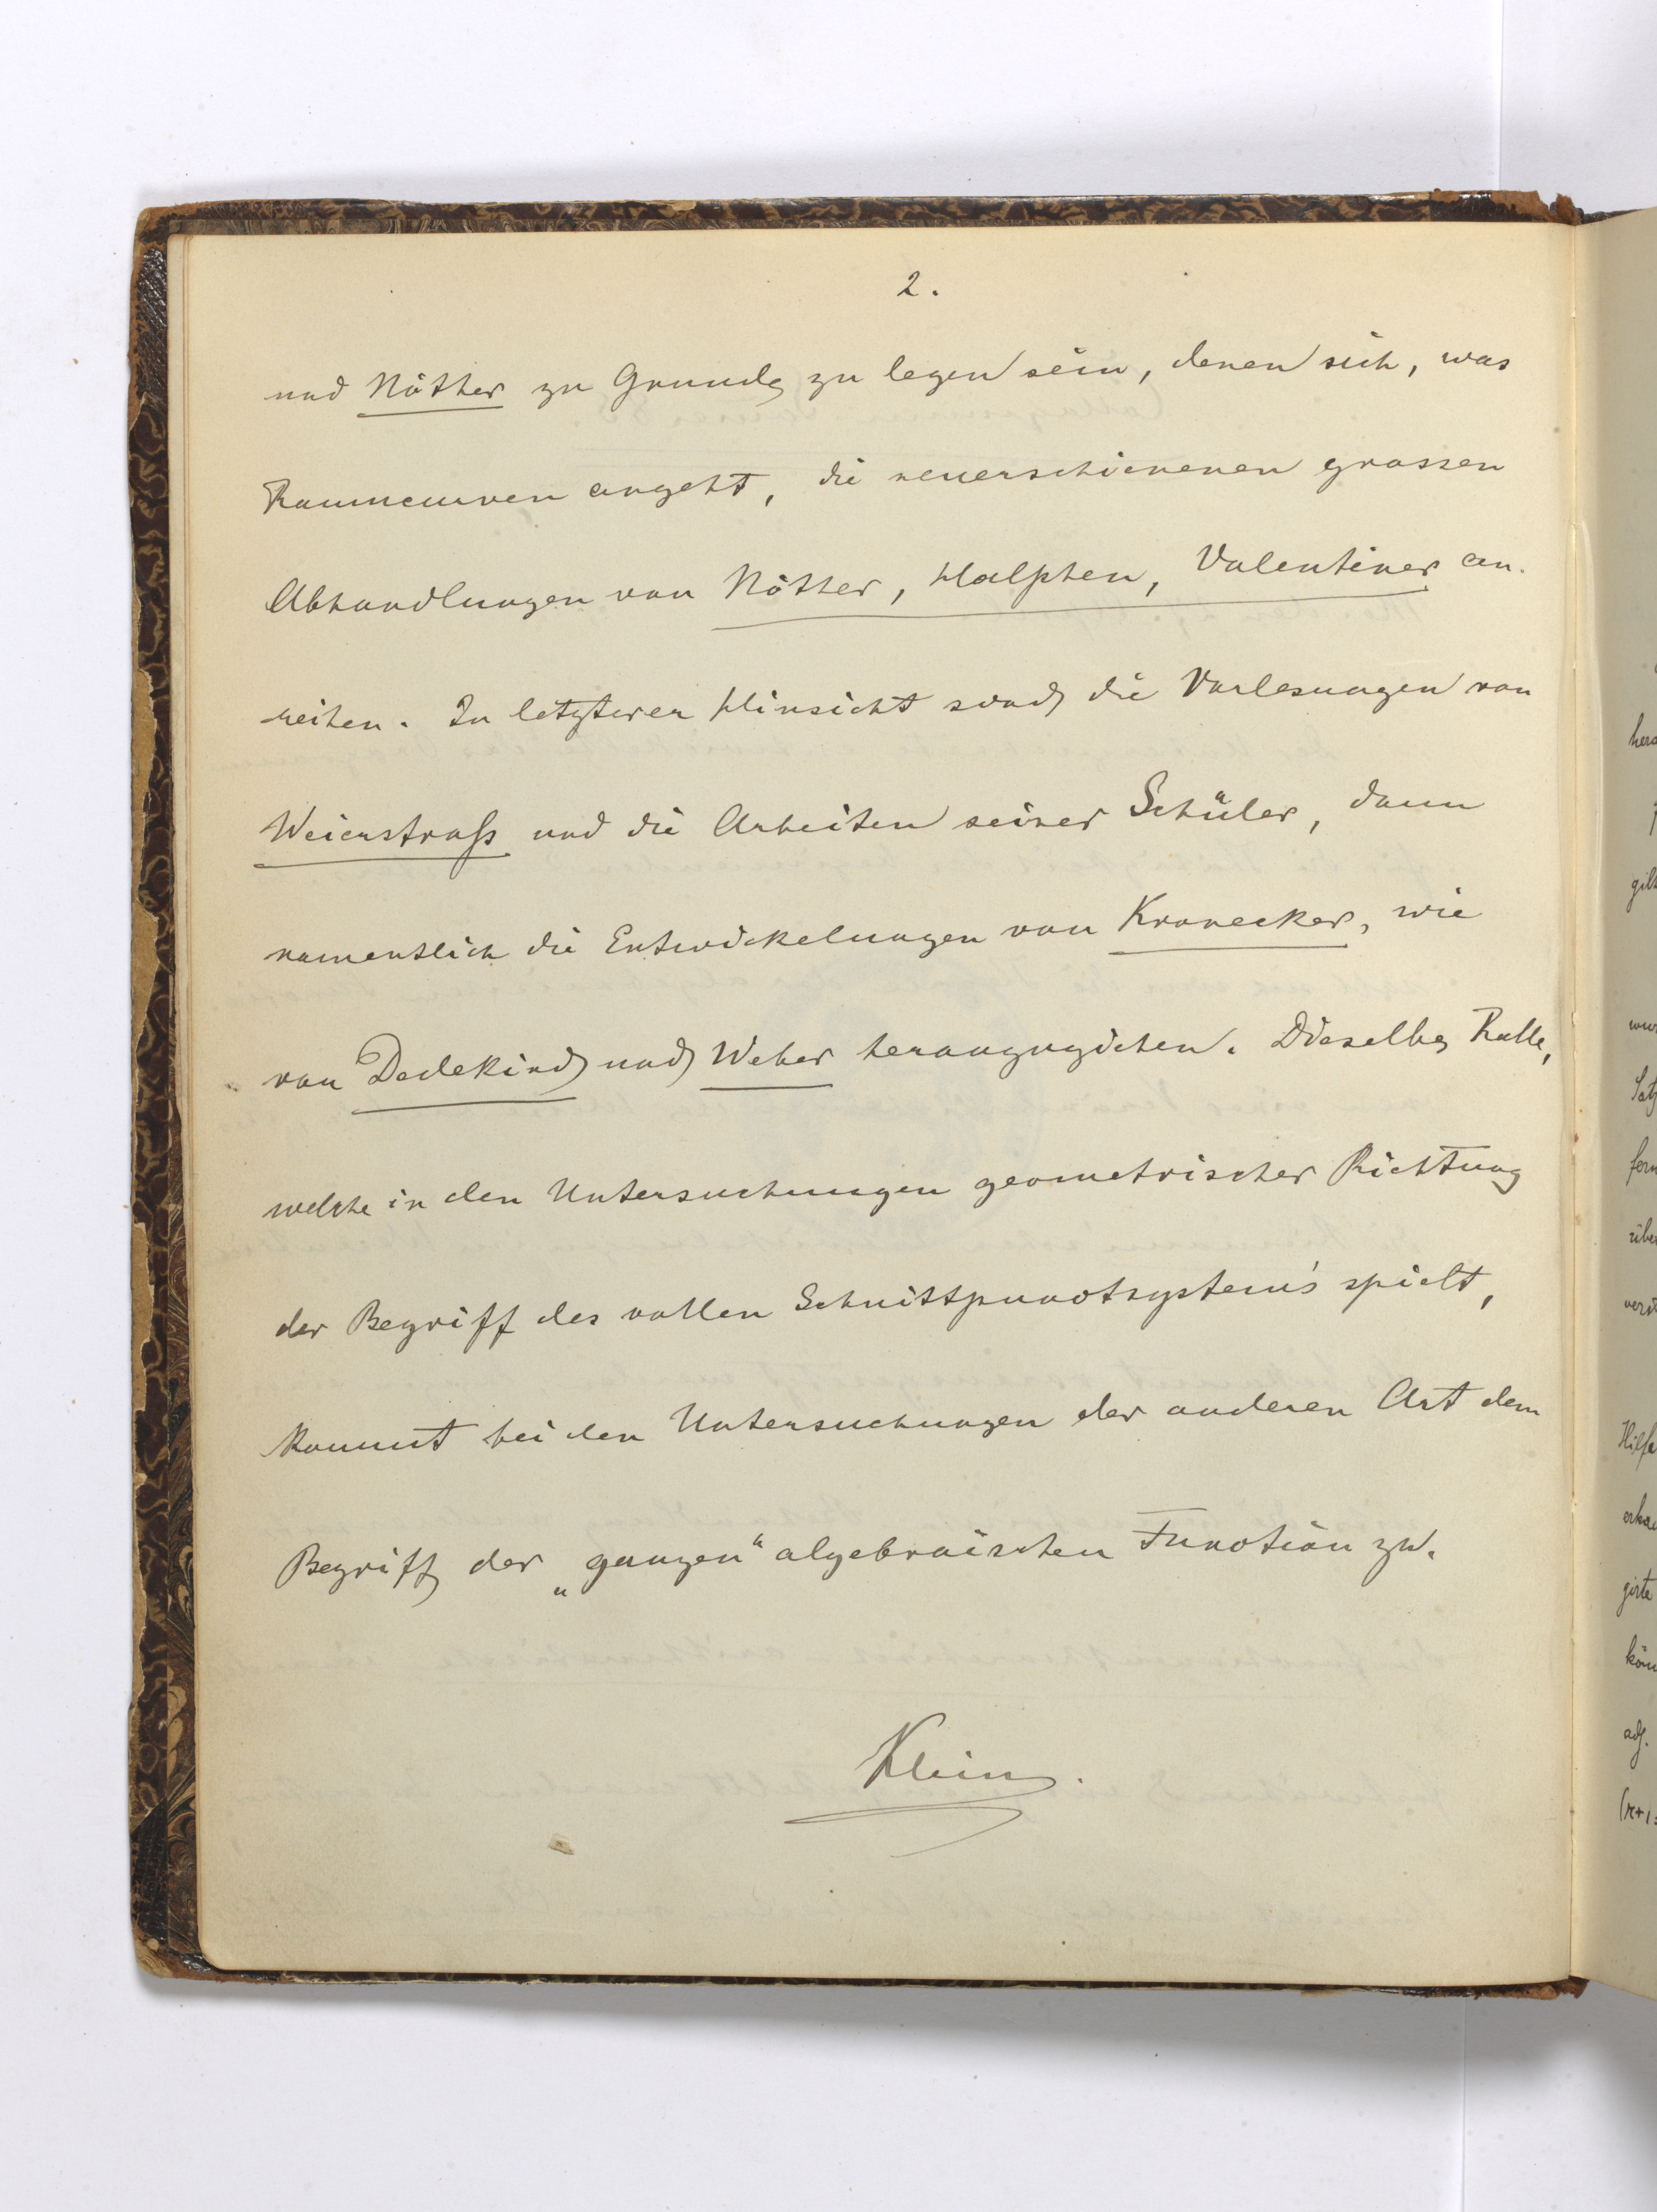 2.
und Nöther zu Grunde zu legen sein, denen sich, was
Raumcurven angeht, die neuerschienenen grossen
Abhandlungen von Nöther, Halphen, Valentiner an.
reihen. In letzterer Hinsicht sind die Vorlesungen von
Weierstraß und die Arbeiten seiner Schüler, dann
namentlich die Entwickelungen von Kronecker, wie
von Dedekind und Weber heranzuziehen. Dieselbe Rolle,
welche in den Untersuchungen geometrischer Richtung
der Begriff des vollen Schnittpunctsystem's spielt,
kommt bei den Untersuchungen der anderen Art dem
Begriff der „ganzen“ algebraischen Function zu.
Klein.
hera
gilt
wur
Satz
fern
über
Hilfe
girte
adj.
(r+1